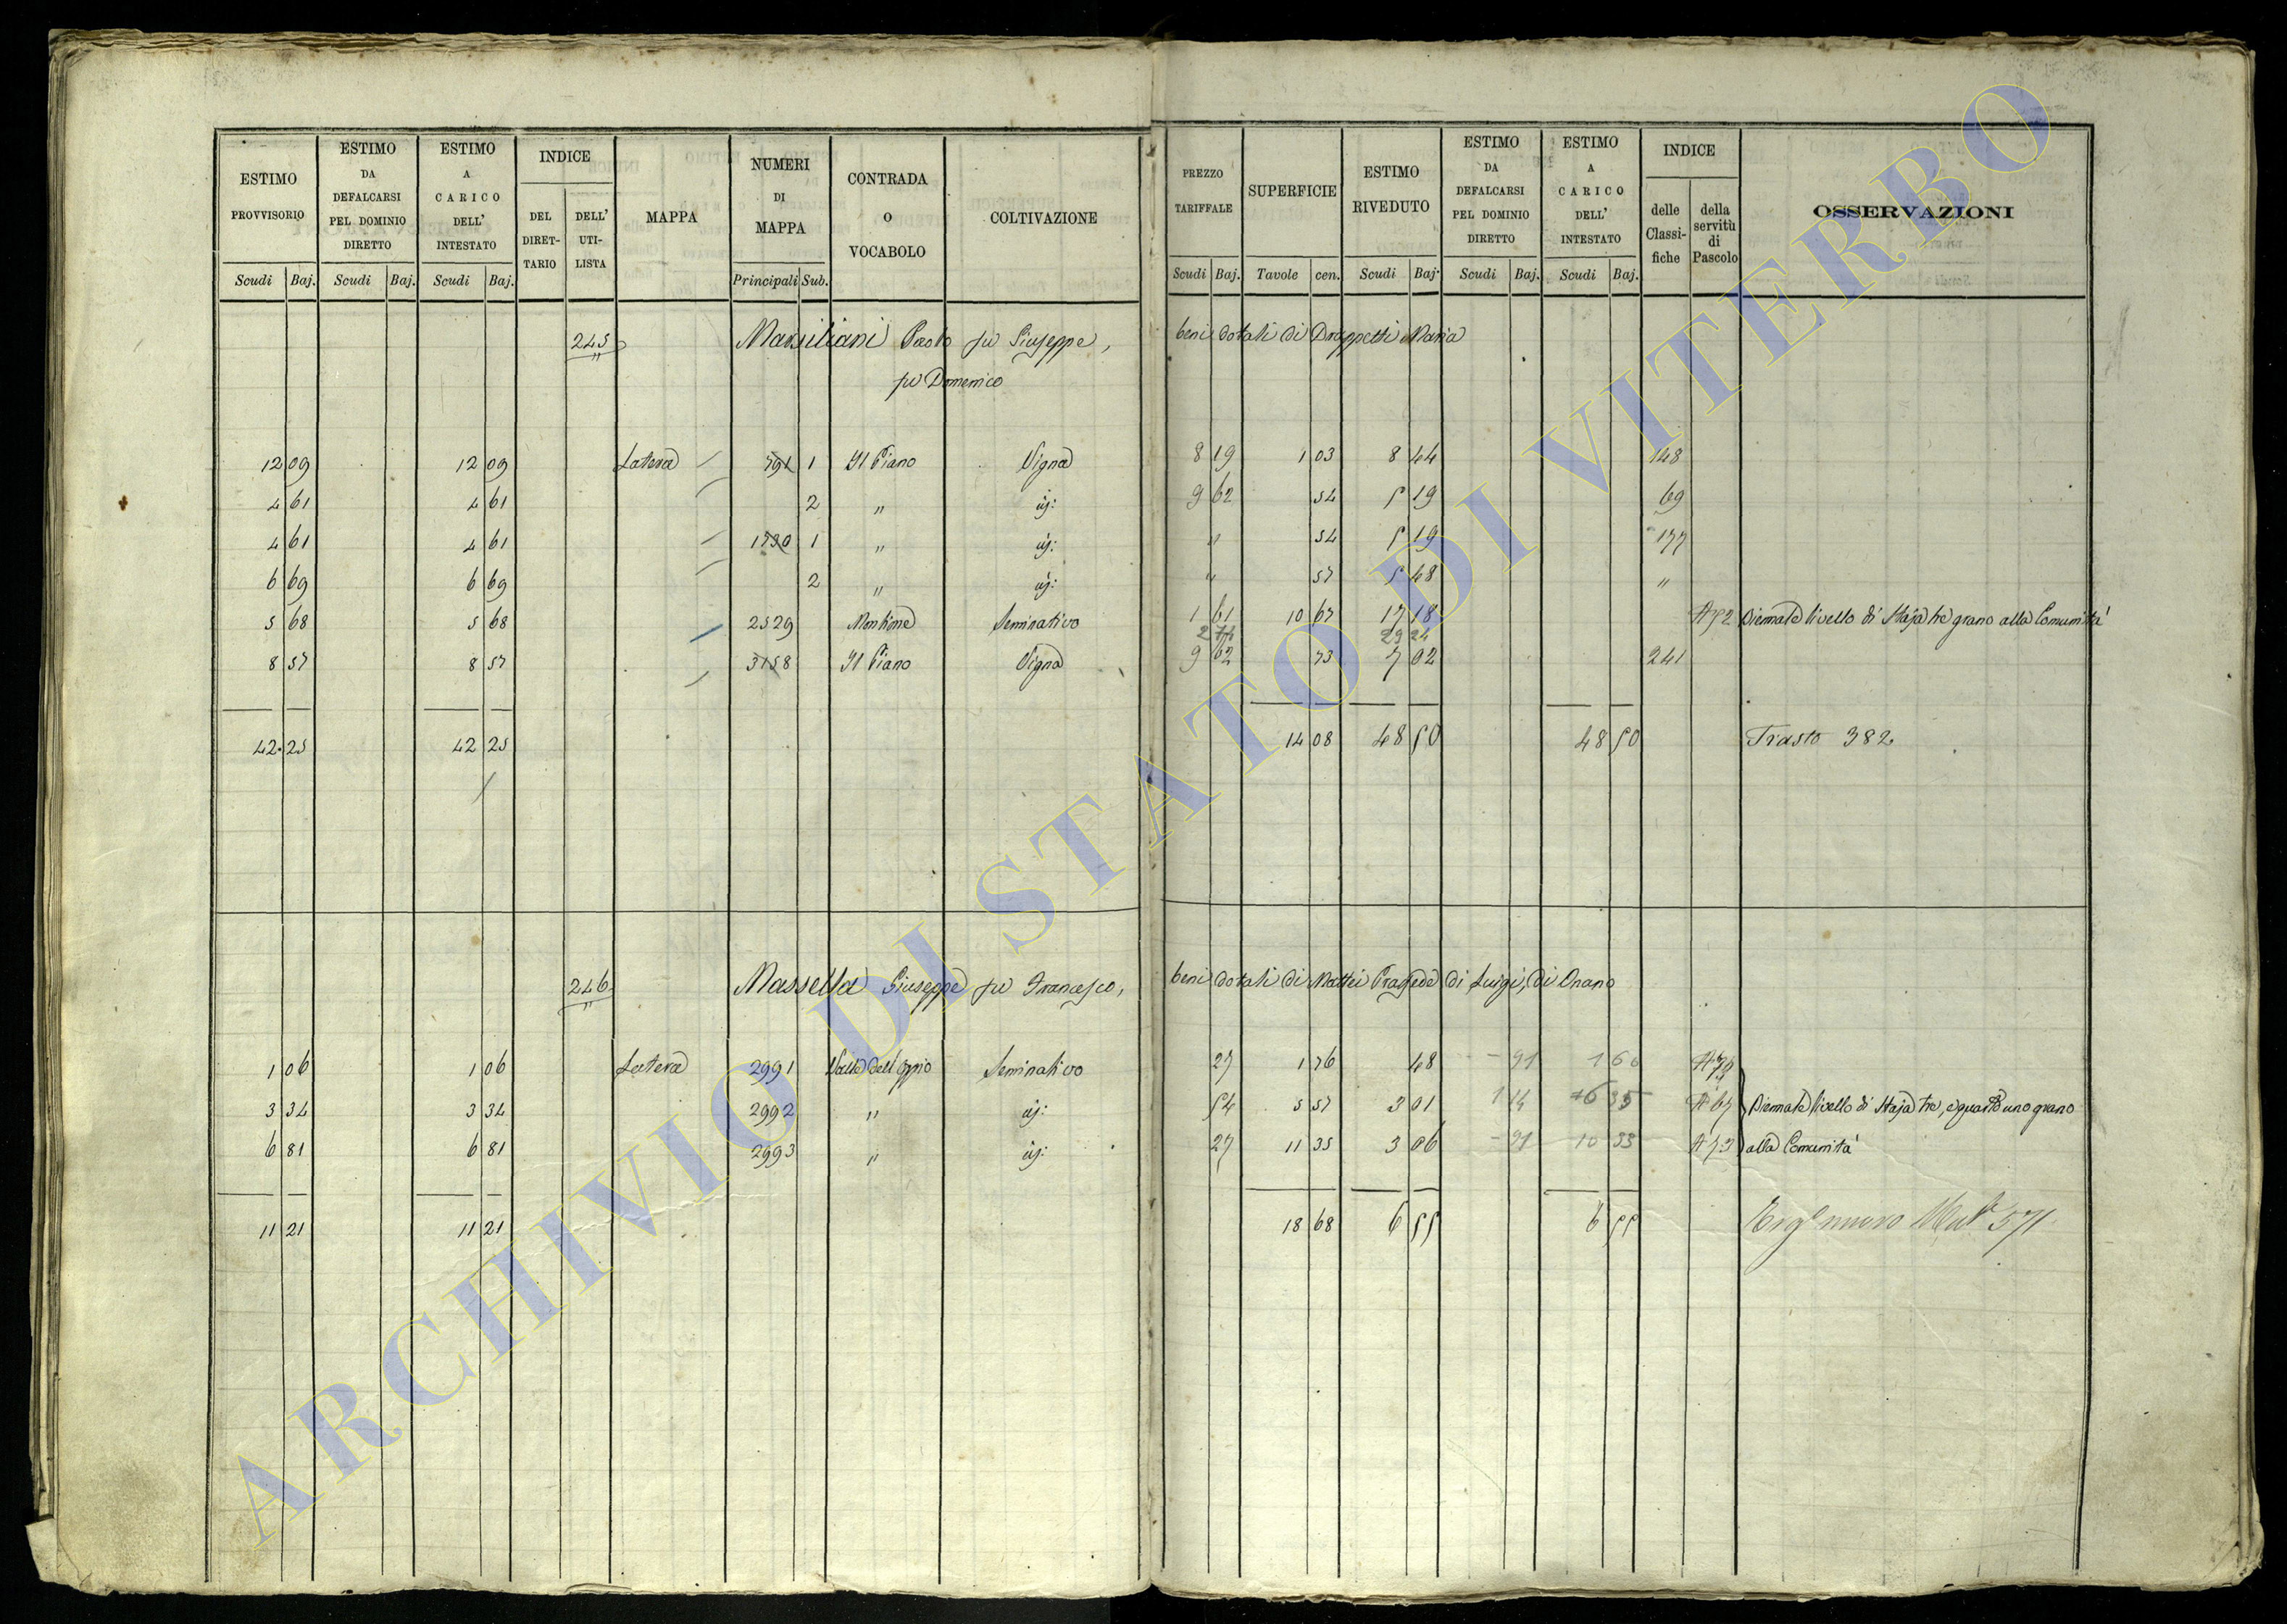 ESTIMO PROVVISORIO Scudi Baj.
ESTIMO DA DEFALCARSI PEL DOMINIO DIRETTO Scudi Baj.
ESTIMO A CARICO DELL' INTESTATO Scudi Baj.
INDICE DEL DIRET- TARIO DELL' UTI- LISTA
MAPPA
NUMERI DI MAPPA Principali Sub.
CONTRADA O VOCABOLO
COLTIVAZIONE
PREZZO TARIFFALE Scudi Baj.
SUPERFICIE Tavole cen.
ESTIMO RIVEDUTO Scudi Baj.
ESTIMO DA DEFALCARSI PEL DOMINIO DIRETTO Scudi Baj.
ESTIMO A CARICO DELL' INTESTATO Scudi Baj.
INDICE delle Classi- fiche della servitù di Pascolo
OSSERVAZIONI
245 Marsiliani Paolo fu Giuseppe, beni dotali di Drappetti Maria
fu Domenico
12 09 12 09 Latera 791 1 Il Piano Vigna 8 19 1 03 8 44 148
4 61 4 61 2 " id: 9 62 54 5 19 69
4 61 4 61 1730 1 " id: " 54 5 19 177
6 69 6 69 2 " id: " 57 5 48 "
5 68 5 68 2529 Montione Seminativo 1 61 10 67 17 18 A 52 Biennale livello di Staja tre grano alla Comunità
2 74 29 24
8 57 8 57 3158 Il Piano Vigna 9 62 73 7 02 241
42 25 42 25 14 08 48 50 48 50 Trasto 382
246 Massella Giuseppe fu Francesco, beni dotali di Mattei Prassede di Luigi, di Onano
1 06 1 06 Latera 2991 Valle dell'oppio Seminativo 27 1 76 48 - 91 1 60
3 34 3 34 2992 " id: 54 5 57 3 01 A 67 Biennale livello di Staja tre, e quarto uno grano
6 81 6 81 2993 " id: 27 11 35 3 06 - 91 10 33 A 73 alla Comunità
11 21 11 21 18 68 6 55 6 55 571
ARCHIVIO DI STATO DI VITERBO